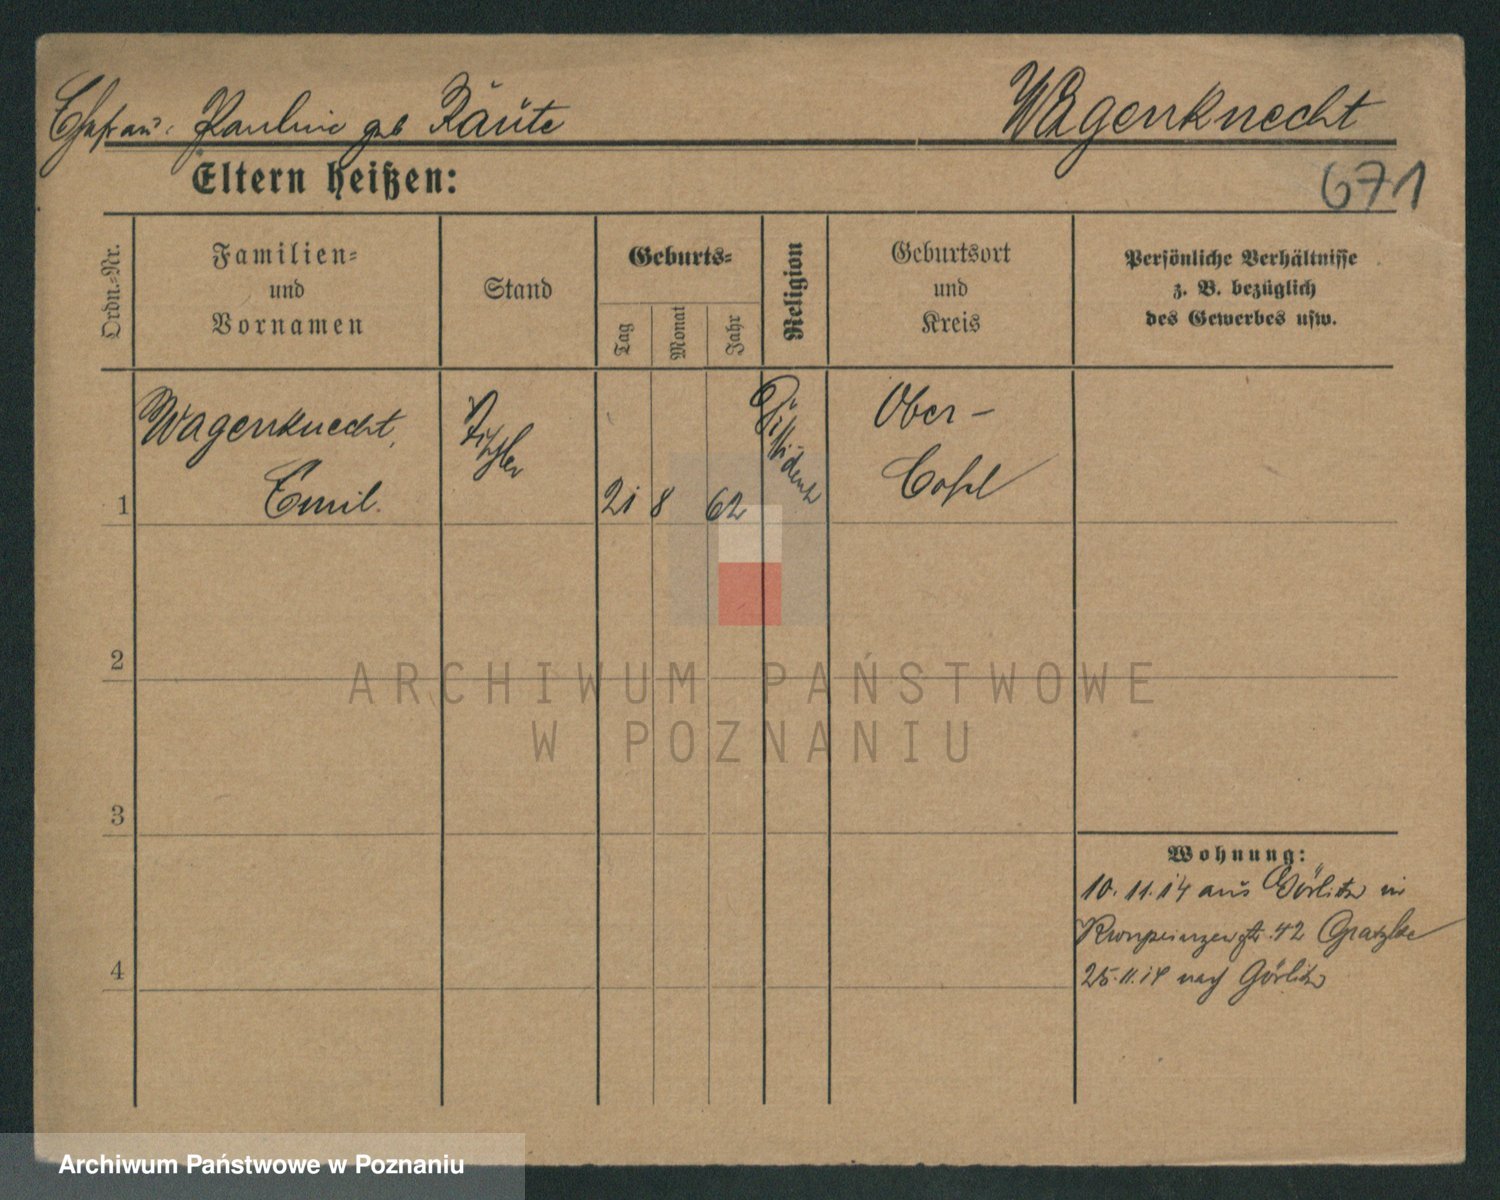 Ehefrau Pauline geb Räute
Wagenknecht
Eltern heißen:
671
Ordn.-Nr.
Familien-
und
Vornamen
Stand
Geburts-
Tag
Monat
Jahr
Religion
Geburtsort
und
Kreis
Persönliche Verhältnisse
z. B. bezüglich
des Gewerbes usw.
1
Wagenknecht,
Emil.
Tischler
21 8 62
Dissident
Ober-
Cosel
2
ARCHIWUM PAŃSTWOWE
W POZNANIU
3
Wohnung:
10.11.14 aus Görlitz in
Kronprinzenstr. 42
25.11.14 nach Görlitz
4
Archiwum Państwowe w Poznaniu